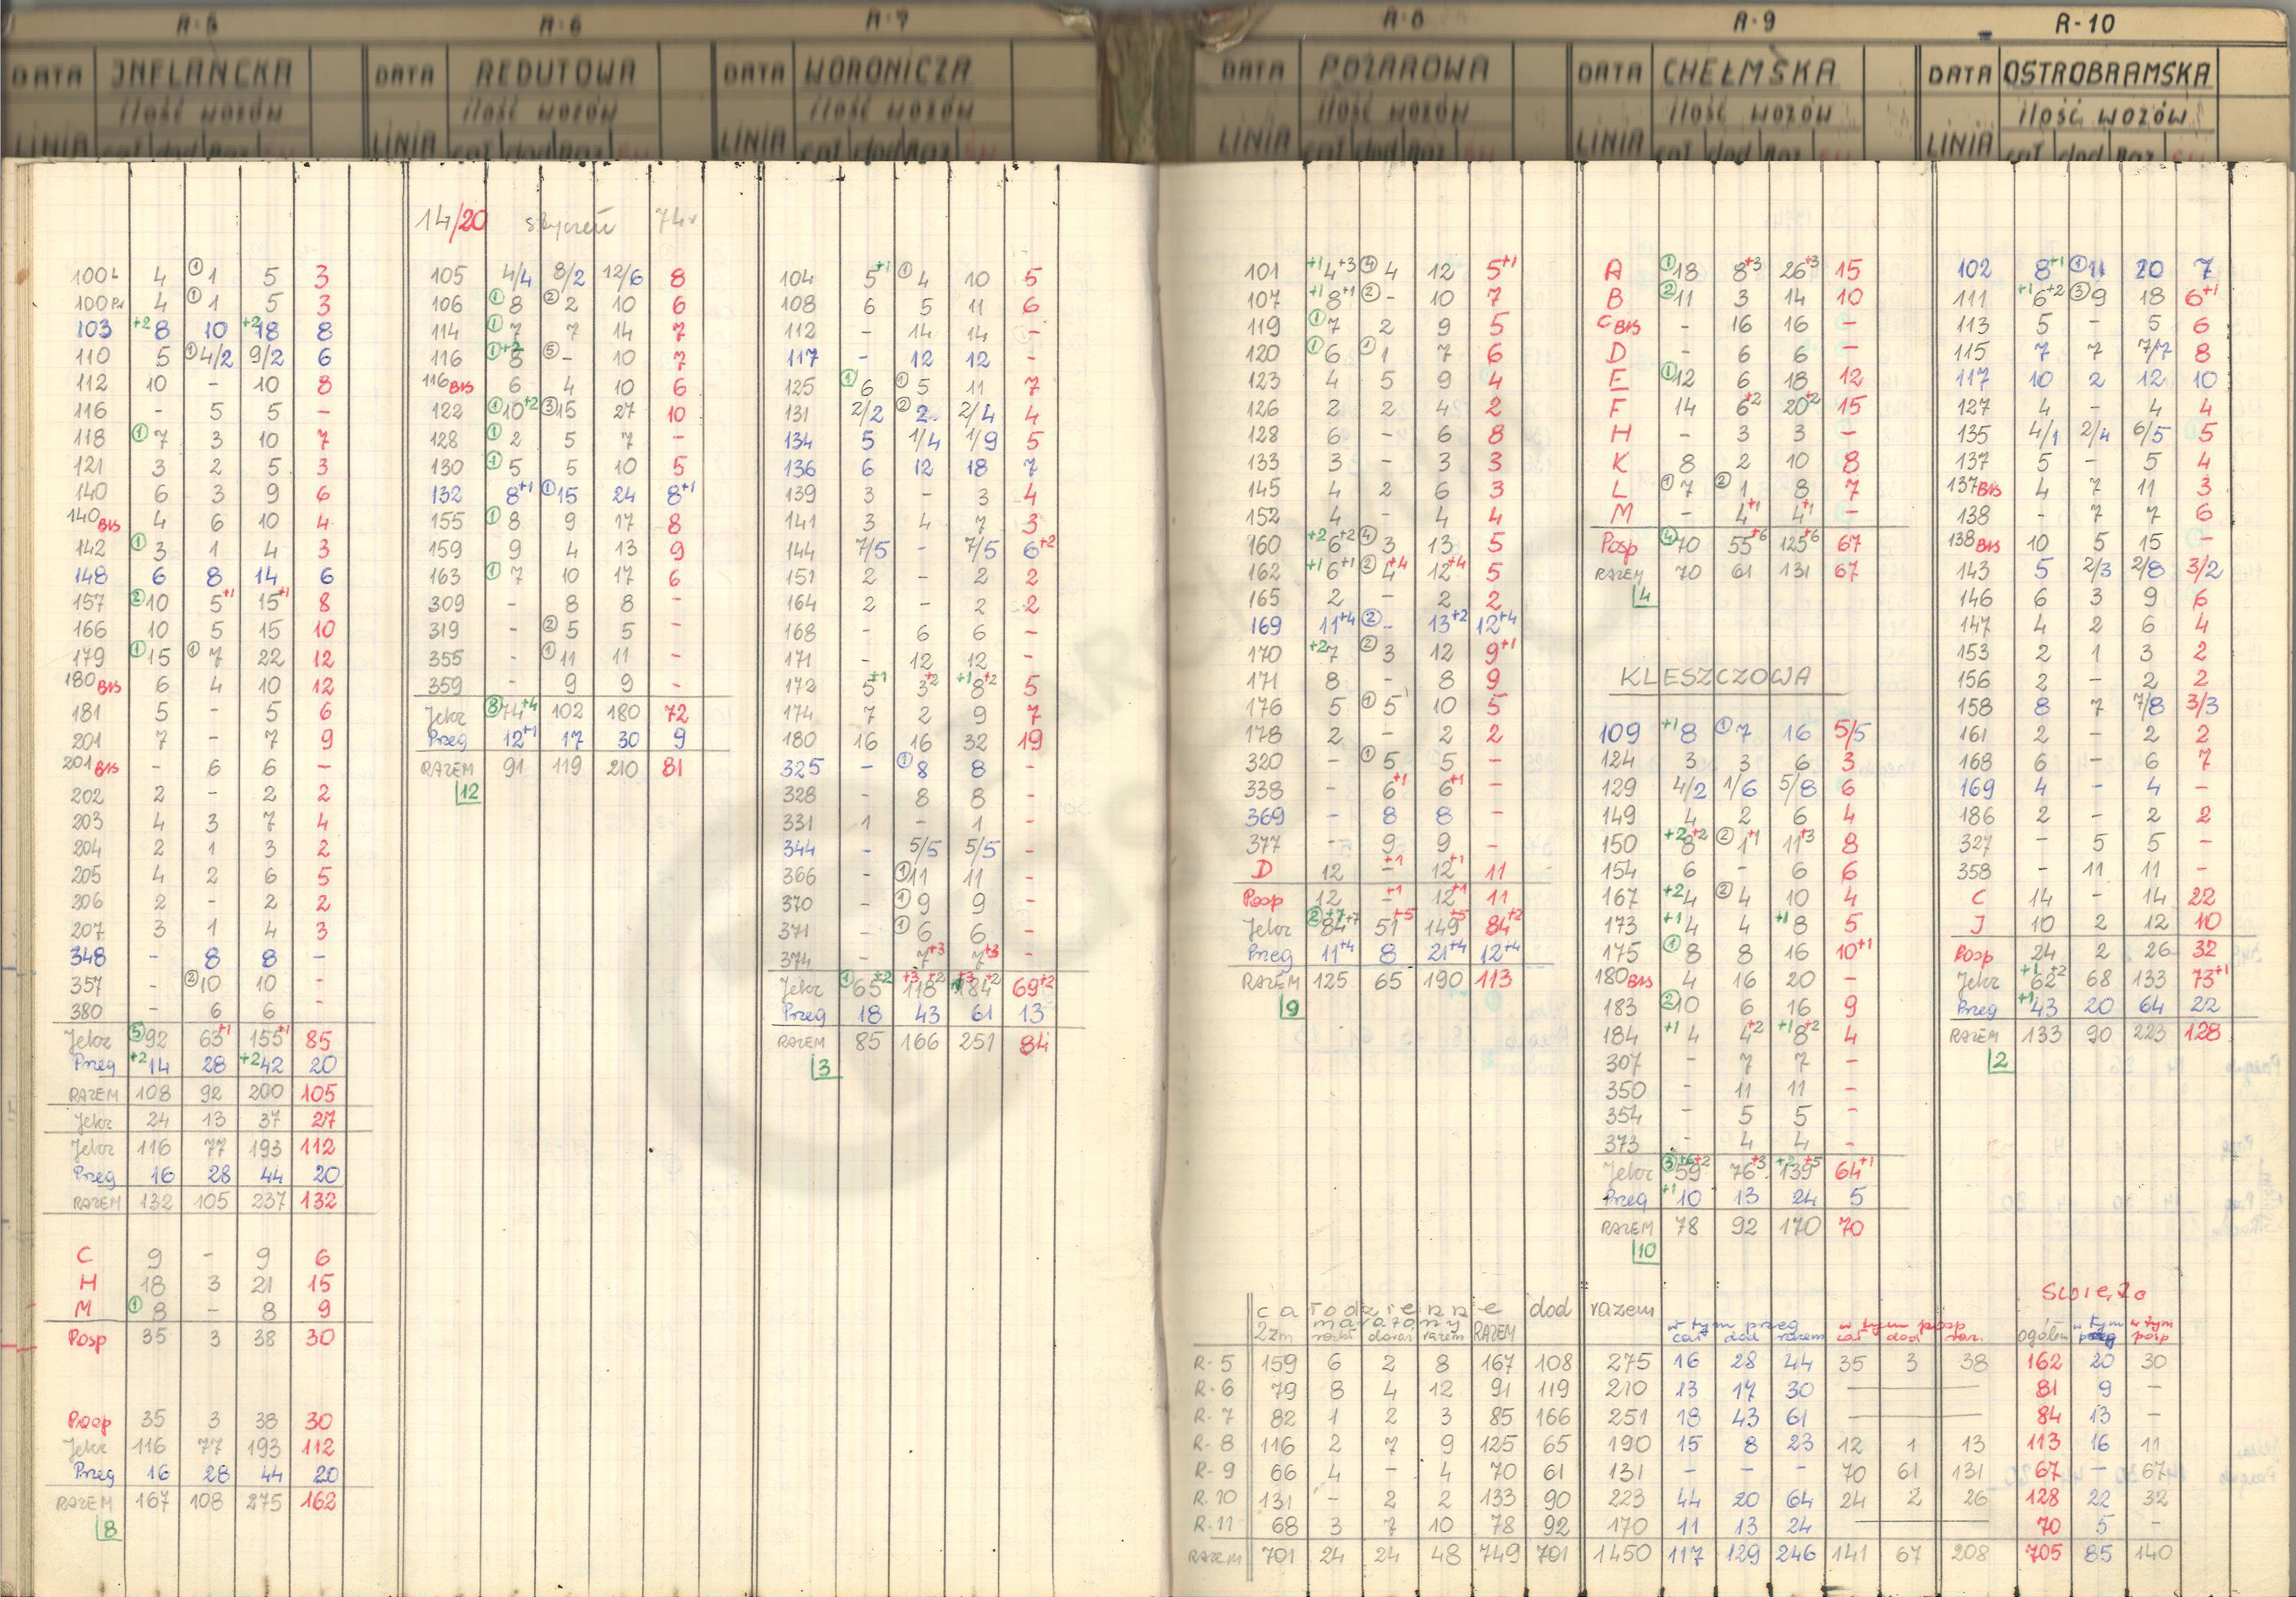 R-5
DATA INFLANCKA
ilość wozów
LINIA cał dod Raz
R-6
DATA REDUTOWA
ilość wozów
LINIA cał dod Raz
R-7
DATA WORONICZA
ilość wozów
LINIA cał dod Raz
R-8
DATA POŻAROWA
ilość wozów
LINIA cał dod Raz
R-9
DATA CHEŁMSKA
ilość wozów
LINIA cał dod Raz
R-10
DATA OSTROBRAMSKA
ilość wozów
LINIA cał dod Raz
100L 4 ①1 5 3
100PR 4 ①1 5 3
103 +2 8 10 +2 18 8
110 5 ①4/2 9/2 6
112 10 - 10 8
116 - 5 5 -
118 ①7 3 10 7
121 3 2 5 3
140 6 3 9 6
140BIS 4 6 10 4
142 ①3 1 4 3
148 6 8 14 6
157 ②10 5+1 15+1 8
166 10 5 15 10
179 ①15 ①7 22 12
180BIS 6 4 10 12
181 5 - 5 6
201 7 - 7 9
201BIS - 6 6 -
202 2 - 2 2
203 4 3 7 4
204 2 1 3 2
205 4 2 6 5
206 2 - 2 2
207 3 1 4 3
348 - 8 8 -
357 - ②10 10 -
380 - 6 6 -
Jelcz ⑤92 63+1 155+1 85
Przeg +2 14 28 +2 42 20
RAZEM 108 92 200 105
Jelcz 24 13 37 27
Jelcz 116 77 193 112
Przeg 16 28 44 20
RAZEM 132 105 237 132
C 9 - 9 6
H 18 3 21 15
M ①8 - 8 9
Posp 35 3 38 30
Posp 35 3 38 30
Jelcz 116 77 193 112
Przeg 16 28 44 20
RAZEM 167 108 275 162
8
14/20 styczeń 74r
105 4/4 8/2 12/6 8
106 ①8 ②2 10 6
114 ①7 7 14 7
116 ①+2 8 ⑤- 10 7
116BIS 6 4 10 6
122 ①10+2 ③15 27 10
128 ①2 5 7 -
130 ①5 5 10 5
132 8+1 ①15 24 8+1
155 ①8 9 17 8
159 9 4 13 9
163 ①7 10 17 6
309 - 8 8 -
319 - ②5 5 -
355 - ①11 11 -
359 - 9 9 -
Jelcz ⑧74+4 102 180 72
Przeg 12+1 17 30 9
RAZEM 91 119 210 81
12
104 5+1 ①4 10 5
108 6 5 11 6
112 - 14 14 -
117 - 12 12 -
125 ①6 ①5 11 7
131 2/2 ②2 2/4 4
134 5 1/4 1/9 5
136 6 12 18 7
139 3 - 3 4
141 3 4 7 3
144 7/5 - 7/5 6+2
151 2 - 2 2
164 2 - 2 2
168 - 6 6 -
171 - 12 12 -
172 5+1 3+2 +1 8+2 5
174 7 2 9 7
180 16 16 32 19
325 - ①8 8 -
328 - 8 8 -
331 1 - 1 -
344 - 5/5 5/5 -
366 - ①11 11 -
370 - ①9 9 -
371 - ①6 6 -
374 - 7+3 7+3 -
Jelcz ①65+2 +3 118+2 +3 184+2 69+2
Przeg 18 43 61 13
RAZEM 85 166 251 84
3
101 +1 4+3 ④4 12 5+1
107 +1 8+1 ②- 10 7
119 ①7 2 9 5
120 ①6 ①1 7 6
123 4 5 9 4
126 2 2 4 2
128 6 - 6 8
133 3 - 3 3
145 4 2 6 3
152 4 - 4 4
160 +2 6+2 ④3 13 5
162 +1 6+1 ②4+4 12+4 5
165 2 - 2 2
169 11+4 ②- 13+2 12+4
170 +2 7 ②3 12 9+1
171 8 - 8 9
176 5 ①5 10 5
178 2 - 2 2
320 - ①5 5 -
338 - 6+1 6+1 -
369 - 8 8 -
377 - 9 9 -
D 12 -+1 12+1 11
Posp 12 -+1 12+1 11
Jelcz ②+7 84+7 51+5 149+5 84+2
Przeg 11+4 8 21+4 12+4
RAZEM 125 65 190 113
9
A ①18 8+3 26+3 15
B ②11 3 14 10
CBIS - 16 16 -
D - 6 6 -
E ①12 6 18 12
F 14 6+2 20+2 15
H - 3 3 -
K 8 2 10 8
L ①7 ②1 8 7
M - 4+1 4+1 -
Posp ④70 55+6 125+6 67
RAZEM 70 61 131 67
4
KLESZCZOWA
109 +1 8 ①7 16 5/5
124 3 3 6 3
129 4/2 1/6 5/8 6
149 4 2 6 4
150 +2 8+2 ②1+1 11+3 8
154 6 - 6 6
167 +2 4 ②4 10 4
173 +1 4 4 +1 8 5
175 ①8 8 16 10+1
180BIS 4 16 20 -
183 ②10 6 16 9
184 +1 4 4+2 +1 8+2 4
307 - 7 7 -
350 - 11 11 -
354 - 5 5 -
373 - 4 4 -
Jelcz ③+6 59+2 76+3 +2 139+5 64+1
Przeg +1 10 13 24 5
RAZEM 78 92 170 70
10
102 8+1 ①11 20 7
111 +1 6+2 ③9 18 6+1
113 5 - 5 6
115 7 7 7/7 8
117 10 2 12 10
127 4 - 4 4
135 4/1 2/4 6/5 5
137 5 - 5 4
137BIS 4 7 11 3
138 - 7 7 6
138BIS 10 5 15 -
143 5 2/3 2/8 3/2
146 6 3 9 6
147 4 2 6 4
153 2 1 3 2
156 2 - 2 2
158 8 7 7/8 3/3
161 2 - 2 2
168 6 - 6 7
169 4 - 4 -
186 2 - 2 2
327 - 5 5 -
358 - 11 11 -
C 14 - 14 22
J 10 2 12 10
Posp 24 2 26 32
Jelcz +1 62+2 68 133 73+1
Przeg +1 43 20 64 22
RAZEM 133 90 223 128
2
całodzienne dod razem w tym przeg w tym posp Święto
maratony
2zm dodan razem RAZEM cał dod razem cał dod raz. ogółem w tym przeg w tym posp
R-5 159 6 2 8 167 108 275 16 28 44 35 3 38 162 20 30
R-6 79 8 4 12 91 119 210 13 17 30 — 81 9 -
R-7 82 1 2 3 85 166 251 18 43 61 — 84 13 -
R-8 116 2 7 9 125 65 190 15 8 23 12 1 13 113 16 11
R-9 66 4 - 4 70 61 131 - - - 70 61 131 67 - 67
R.10 131 - 2 2 133 90 223 44 20 64 24 2 26 128 22 32
R-11 68 3 7 10 78 92 170 11 13 24 — 70 5 -
RAZEM 701 24 24 48 749 701 1450 117 129 246 141 67 208 705 85 140